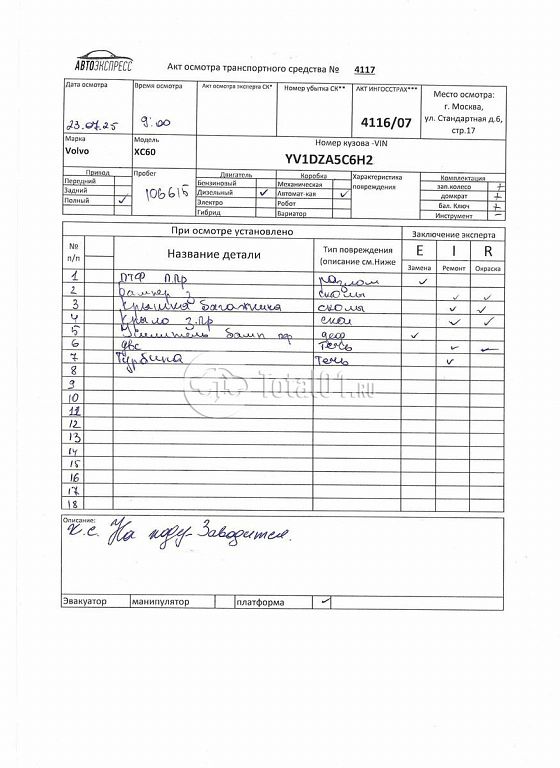 АВТОЭКСПРЕСС
Акт осмотра транспортного средства № 4117
Дата осмотра
23.07.25
Время осмотра
9:00
Акт осмотра эксперта СК*
Номер убытка СК**
АКТ ИНГОССТРАХ***
4116/07
Место осмотра:
г. Москва,
ул. Стандартная д.6,
стр.17
Марка
Volvo
Модель
XC60
Номер кузова -VIN
YV1DZA5C6H2
Привод
Передний
Задний
Полный ✓
Пробег
106615
Двигатель
Бензиновый
Дизельный ✓
Электро
Гибрид
Коробка
Механическая
Автомат-кая ✓
Робот
Вариатор
Характеристика
повреждения
Комплектация
зап.колесо +
домкрат +
Бал. Ключ +
Инструмент -
При осмотре установлено
Заключение эксперта
№
п/п
Название детали
Тип повреждения
(описание см.Ниже
E I R
Замена Ремонт Окраска
1 ПТФ П.Пр разлом ✓
2 Бампер З сколы ✓ ✓
3 Крышка багажника сколы ✓ ✓
4 Крыло З.Пр скол ✓ ✓
5 Усилитель бамп деф ✓
6 ДВС Течь ✓
7 Турбина Течь ✓
8
9
10
11
12
13
14
15
16
17
18
Total01.RU
Описание:
К.с. На ходу-Заводится.
Эвакуатор манипулятор платформа ✓